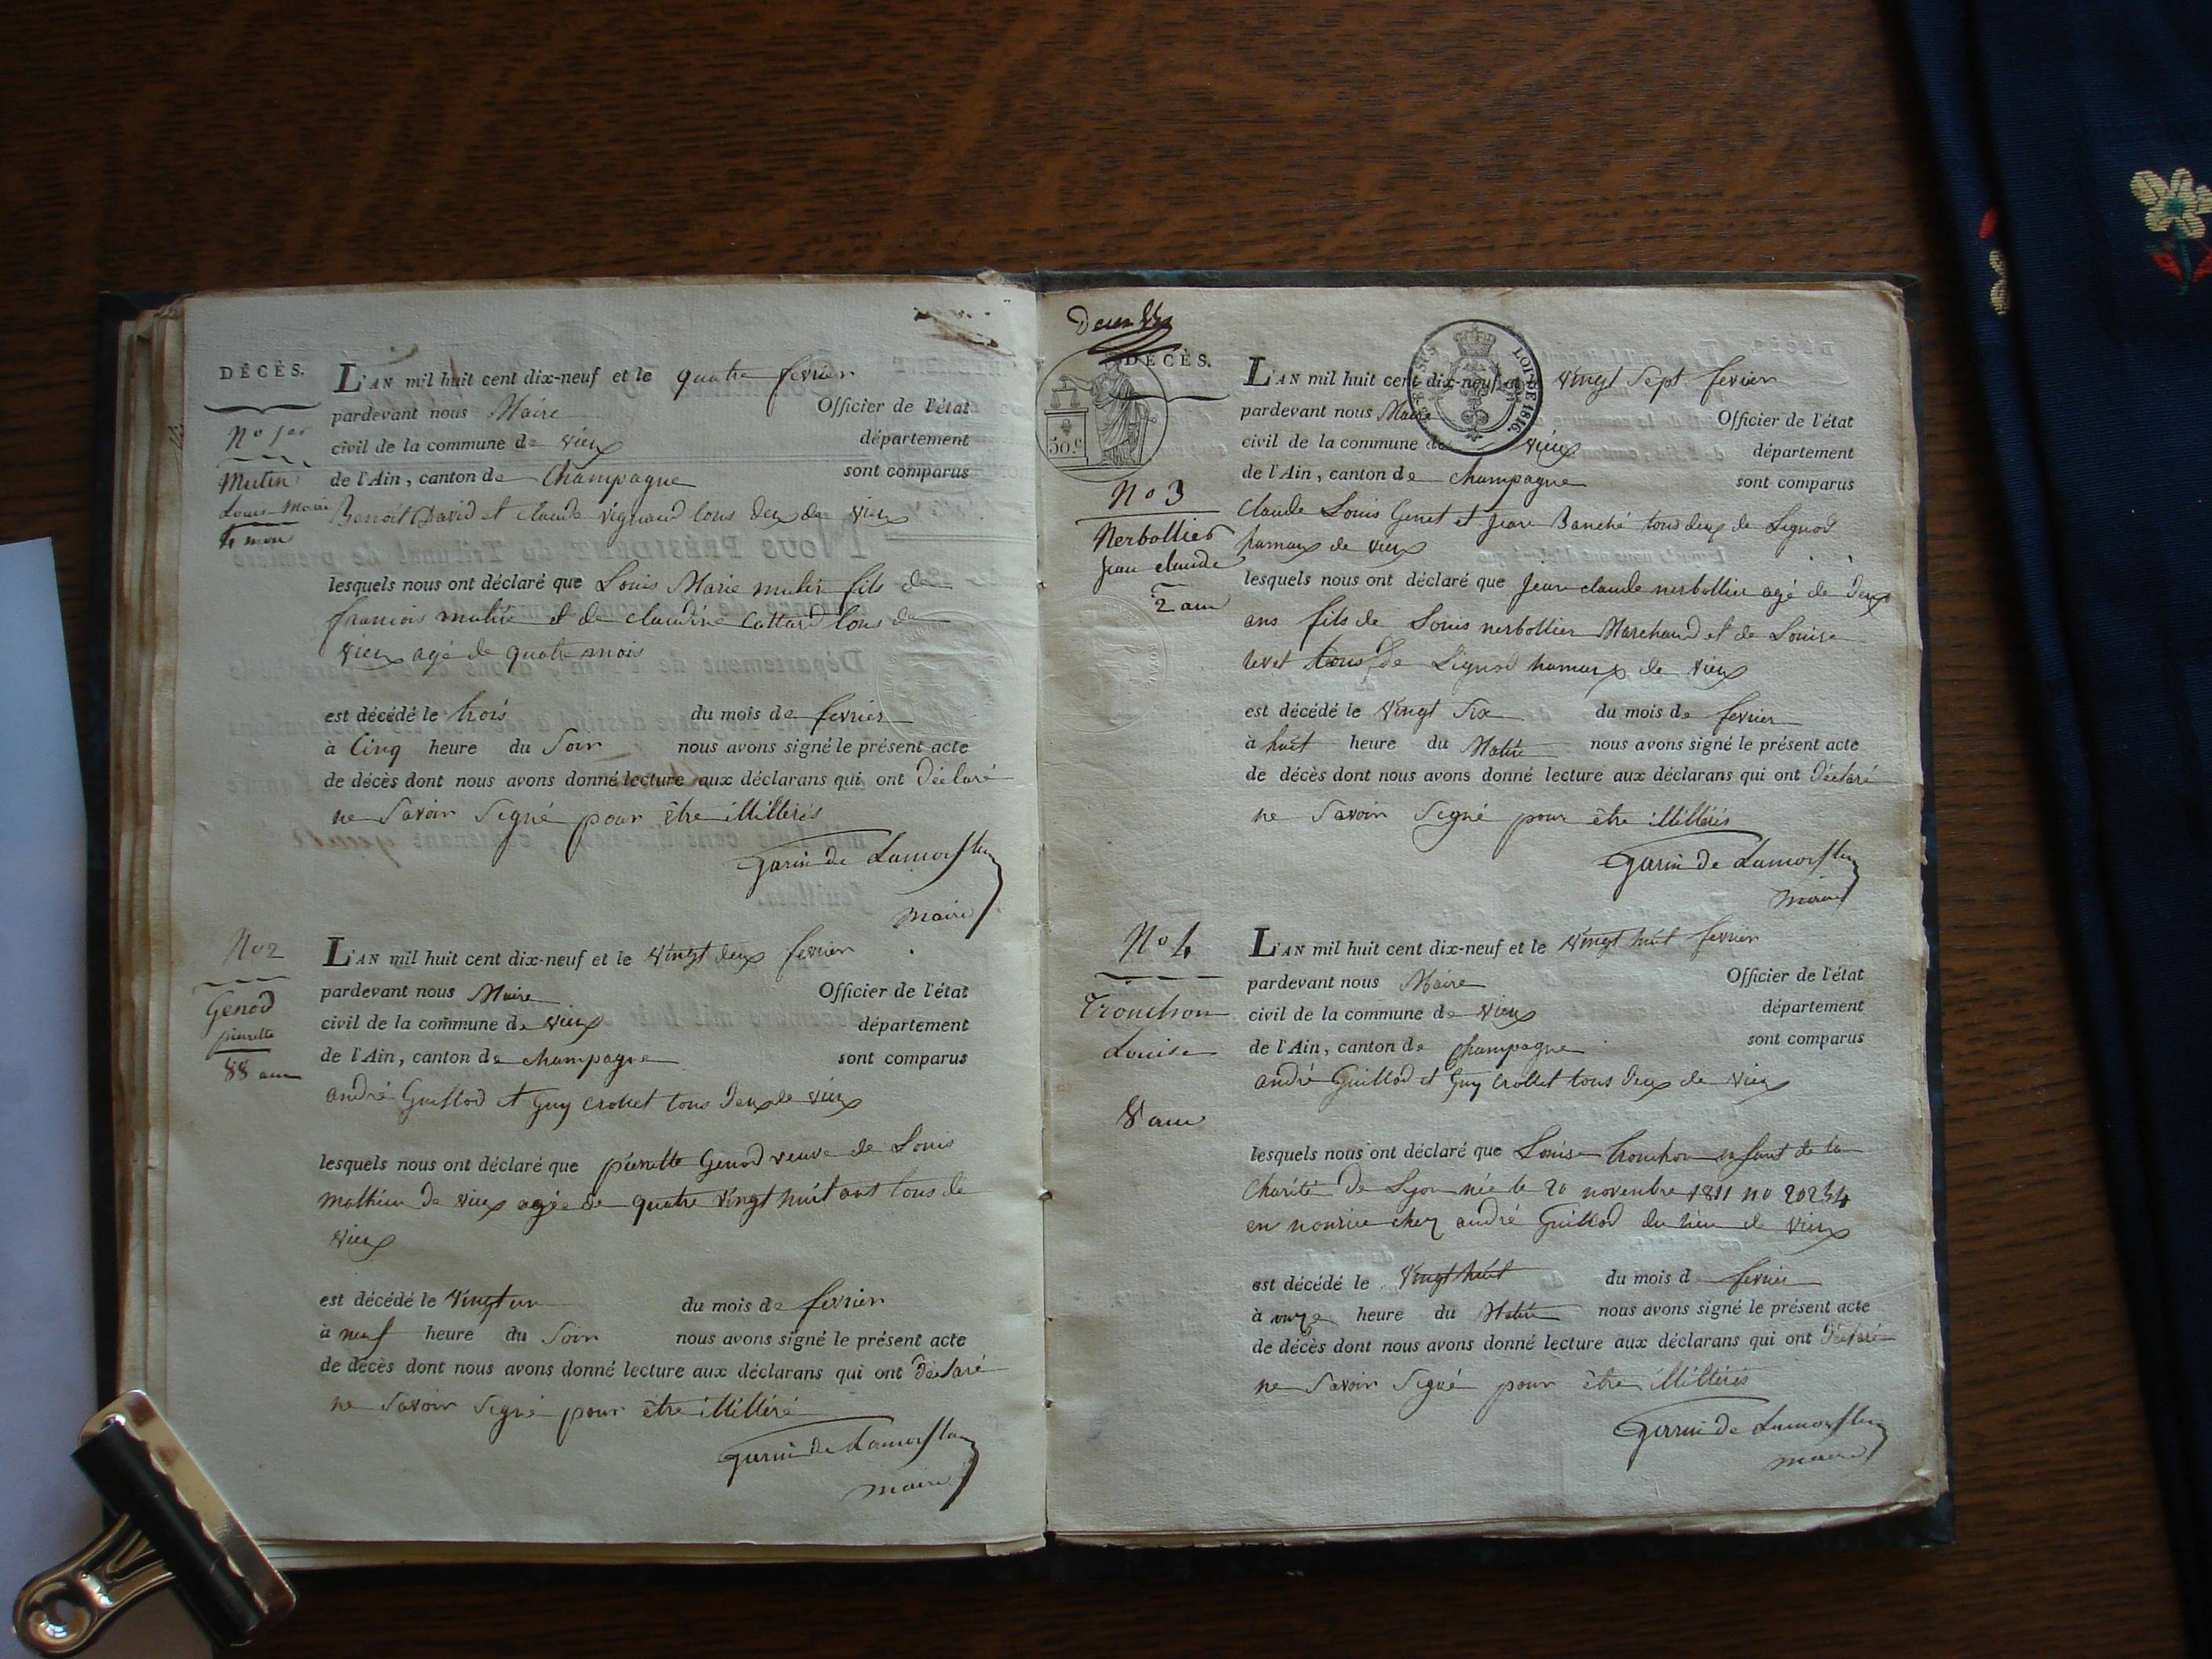 DÉCÈS.
No 1er
Mutin
Louis Marie
4 mois
L'AN mil huit cent dix-neuf et le quatre fevrier
pardevant nous Maire Officier de l'état
civil de la commune de vieux département
de l'Ain, canton de Champagne sont comparus
Benoit David et Claude vignaud tous deux de vieux
lesquels nous ont déclaré que Louis Marie mutin fils de
francois mutin et de claudine Cottard tous de
vieux agé de quatre mois
est décédé le trois du mois de fevrier
à Cinq heure du Soir nous avons signé le présent acte
de décès dont nous avons donné lecture aux déclarans qui ont déclaré
ne Savoir Signé pour être illitterés
Garin de Lamorflan
maire
No 2
Genod
pierrette
88 ans
L'AN mil huit cent dix-neuf et le vingt deux fevrier
pardevant nous Maire Officier de l'état
civil de la commune de vieux département
de l'Ain, canton de champagne sont comparus
andré Guillod et Guy crollet tous deux de vieux
lesquels nous ont déclaré que pierrette Genod veuve de Louis
mathieu de vieux agée de quatre vingt huit ans tous de
vieux
est décédé le vingt un du mois de fevrier
à neuf heure du Soir nous avons signé le présent acte
de décès dont nous avons donné lecture aux déclarans qui ont déclaré
ne Savoir Signé pour être illittéré
Garin de Lamorflan
maire
deux
DÉCÈS.
50 c
LOI DE 1816.
No 3
Nerbollier
Jean claude
2 ans
L'AN mil huit cent dix-neuf et vingt Sept fevrier
pardevant nous Maire Officier de l'état
civil de la commune de vieux département
de l'Ain, canton de champagne sont comparus
Claude Louis Genet et Jean Banché tous deux de Lignod
hamaux de vieux
lesquels nous ont déclaré que Jean claude nerbollier agé de deux
ans fils de Louis nerbollier Marchand et de Louise
tevet tous de Lignod hamaux de vieux
est décédé le vingt Six du mois de fevrier
à huit heure du Matin nous avons signé le présent acte
de décès dont nous avons donné lecture aux déclarans qui ont déclaré
ne Savoir Signé pour être illittérés
Garin de Lamorflan
maire
No 4
Tronchon
Louise
8 ans
L'AN mil huit cent dix-neuf et le vingt huit fevrier
pardevant nous Maire Officier de l'état
civil de la commune de vieux département
de l'Ain, canton de Champagne sont comparus
andré Guillod et Guy crollet tous deux de vieux
lesquels nous ont déclaré que Louise tronchon enfant de la
Charité de Lyon née le 20 novembre 1811 no 20254
en nourice chez andré Guillod du lieu de vieux
est décédé le vingt huit du mois de fevrier
à onze heure du Matin nous avons signé le présent acte
de décès dont nous avons donné lecture aux déclarans qui ont déclaré
ne Savoir Signé pour être illittérés
Garin de Lamorflan
maire